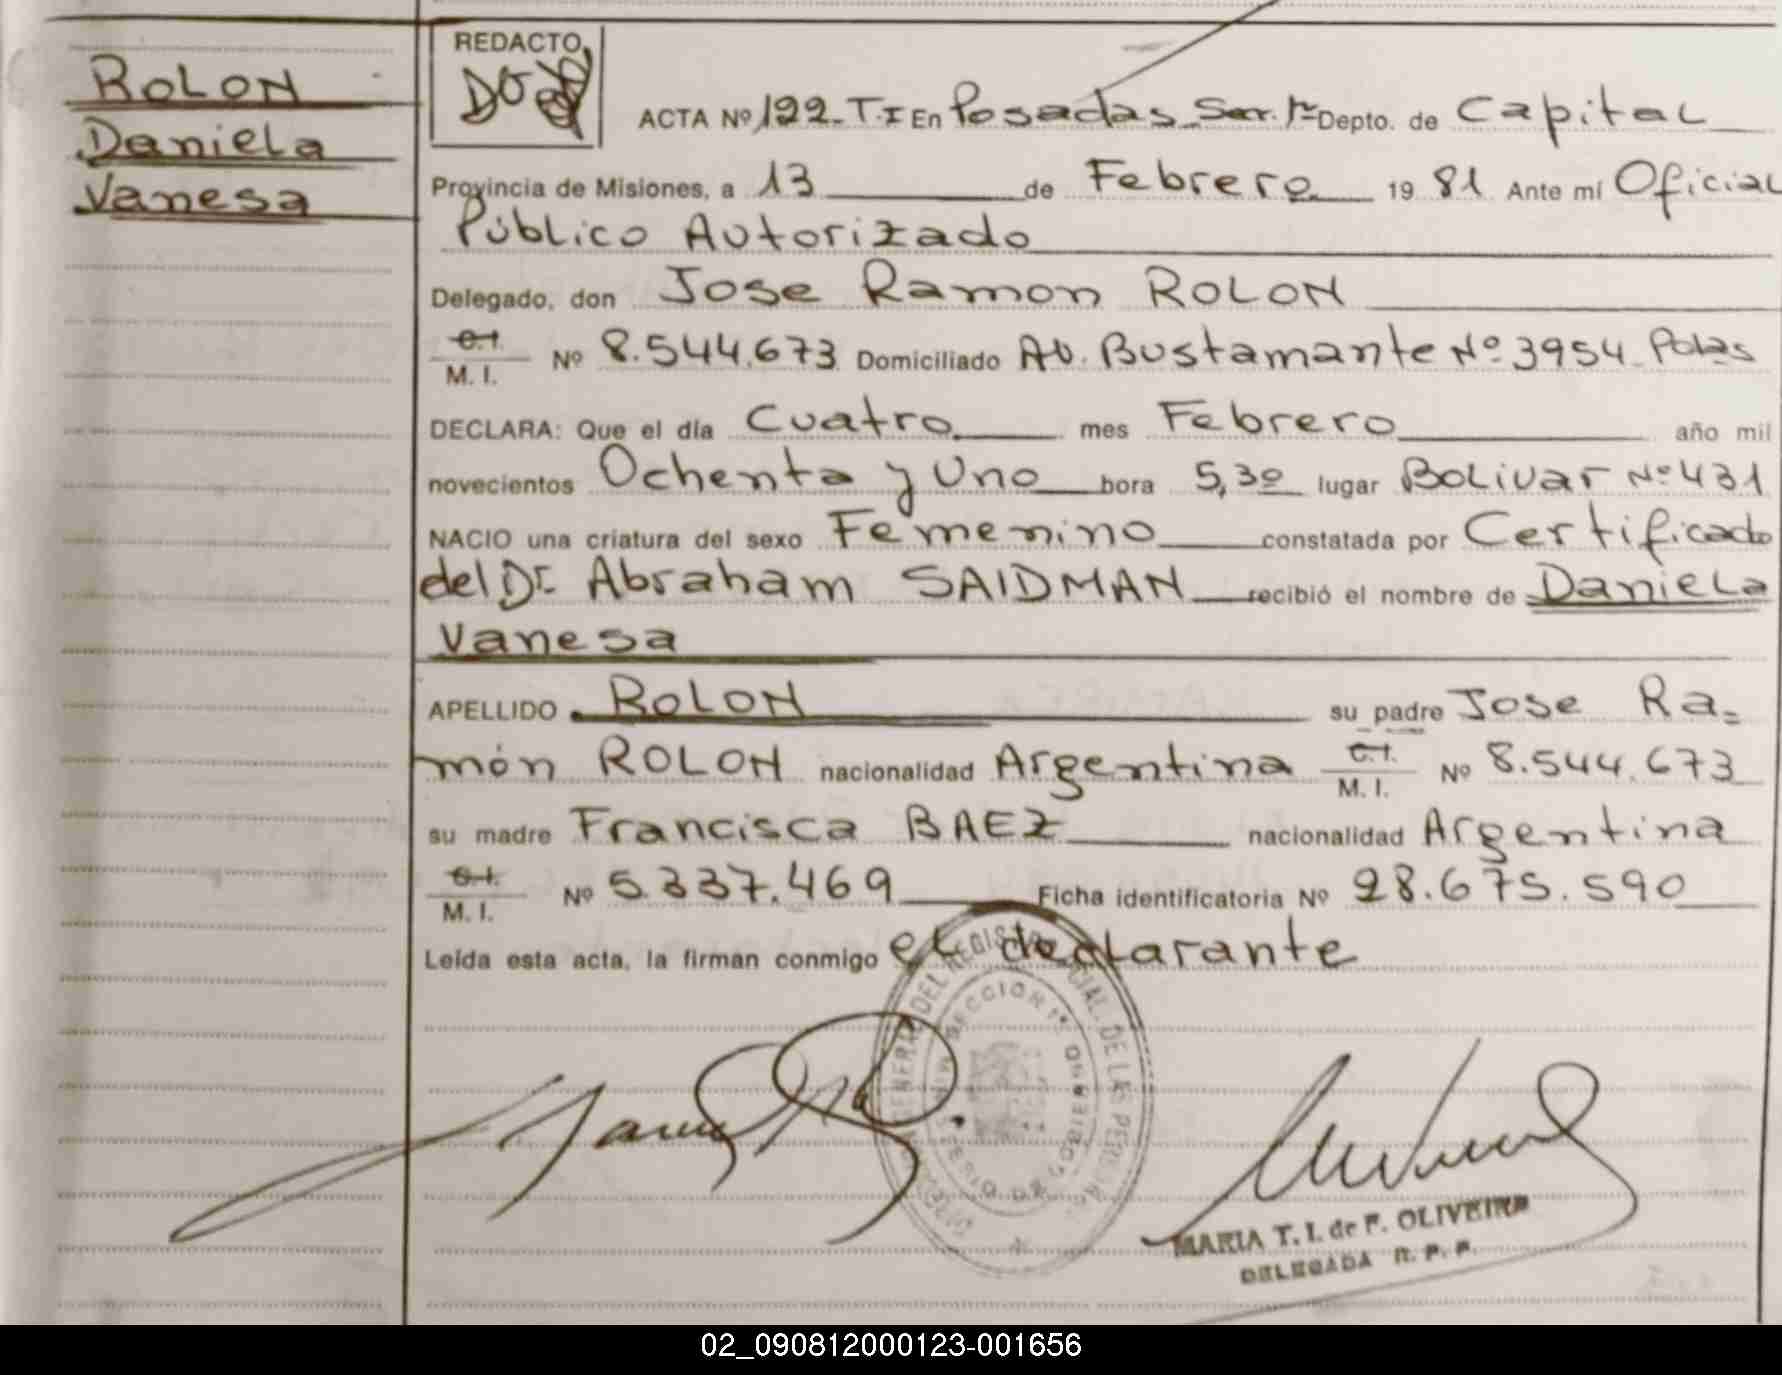 ROLON
Daniela
Vanesa
REDACTO
ACTA Nº 122-T.I En Posadas Sec. 1ª Depto. de Capital
Provincia de Misiones, a 13 de Febrero 19 81 Ante mí Oficial
Público Autorizado
Delegado, don Jose Ramon ROLON
C.I.
M. I. Nº 8.544.673 Domiciliado Av. Bustamante Nº 3954 - Pdas
DECLARA: Que el día Cuatro mes Febrero año mil
novecientos Ochenta y Uno hora 5,30 lugar Bolivar Nº 431
NACIO una criatura del sexo Femenino constatada por Certificado
del Dr. Abraham SAIDMAN recibió el nombre de Daniela
Vanesa
APELLIDO ROLON su padre Jose Ra=
món ROLON nacionalidad Argentina C.I.
M. I. Nº 8.544.673
su madre Francisca BAEZ nacionalidad Argentina
C.I.
M. I. Nº 5.337.469 Ficha identificatoria Nº 28.675.590
Leída esta acta, la firman conmigo el declarante
MARIA T. I. de F. OLIVEIRA
DELEGADA R. P. P.
02_090812000123-001656